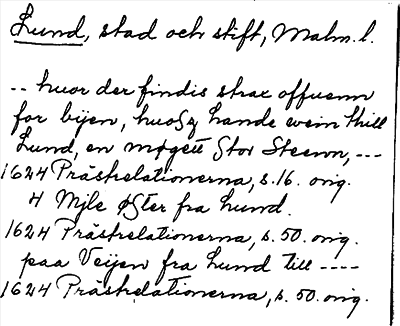 Lund, stad och stift, Malm. l.
-- huor der findis strax offuenn
for byen, huoss hande wein thill
Lund, en møgett Stor Steenn, ---
1624 Prästrelationerna, s. 16. orig.
4 Mjle øster fra Lund.
1624 Prästrelationerna, s. 50. orig.
paa Veijen fra Lund till ----
1624 Prästrelationerna, s. 50. orig.